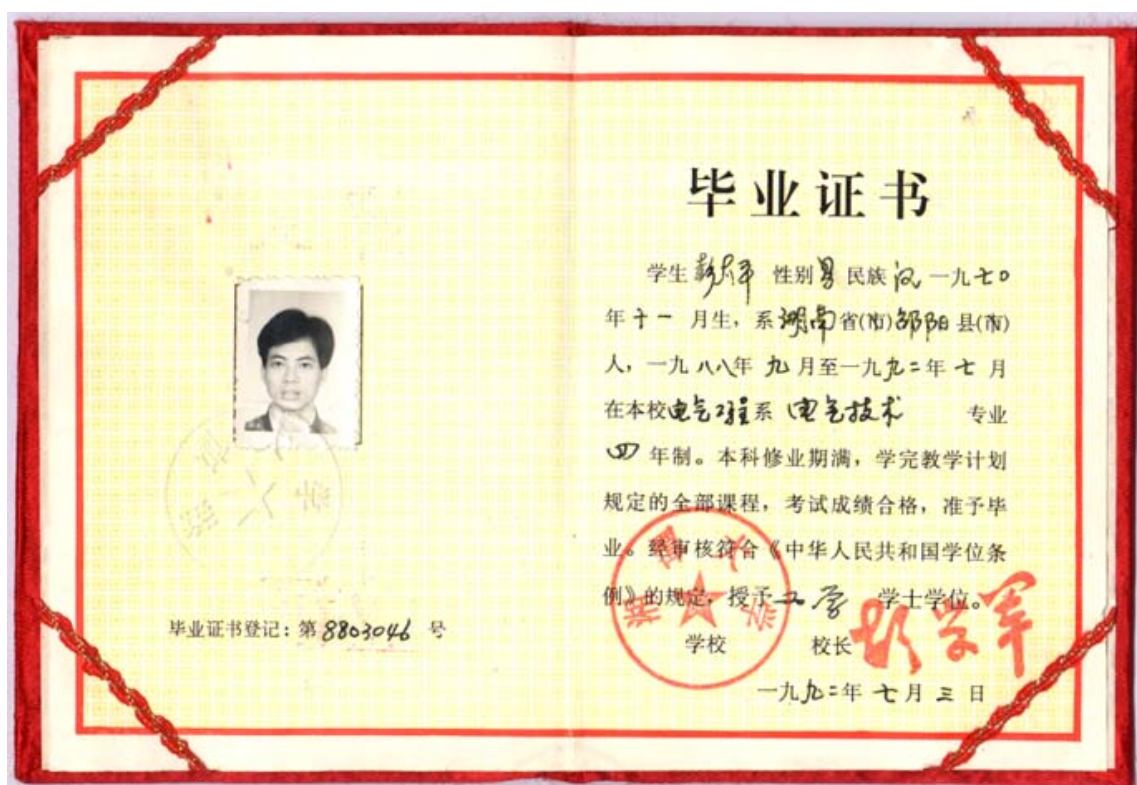 毕业证书
学生彭太平 性别男民族汉一九七〇
年十一月生，系湖南省(市)邵阳县(市)
人，一九八八年九月至一九九二年七月
在本校电气工程系电气技术 专业
四年制。本科修业期满，学完教学计划
规定的全部课程，考试成绩合格，准予毕
业。经审核符合《中华人民共和国学位条
例》的规定，授予工学 学士学位。
学校 校长
一九九二年七月三日
毕业证书登记：第8803046号